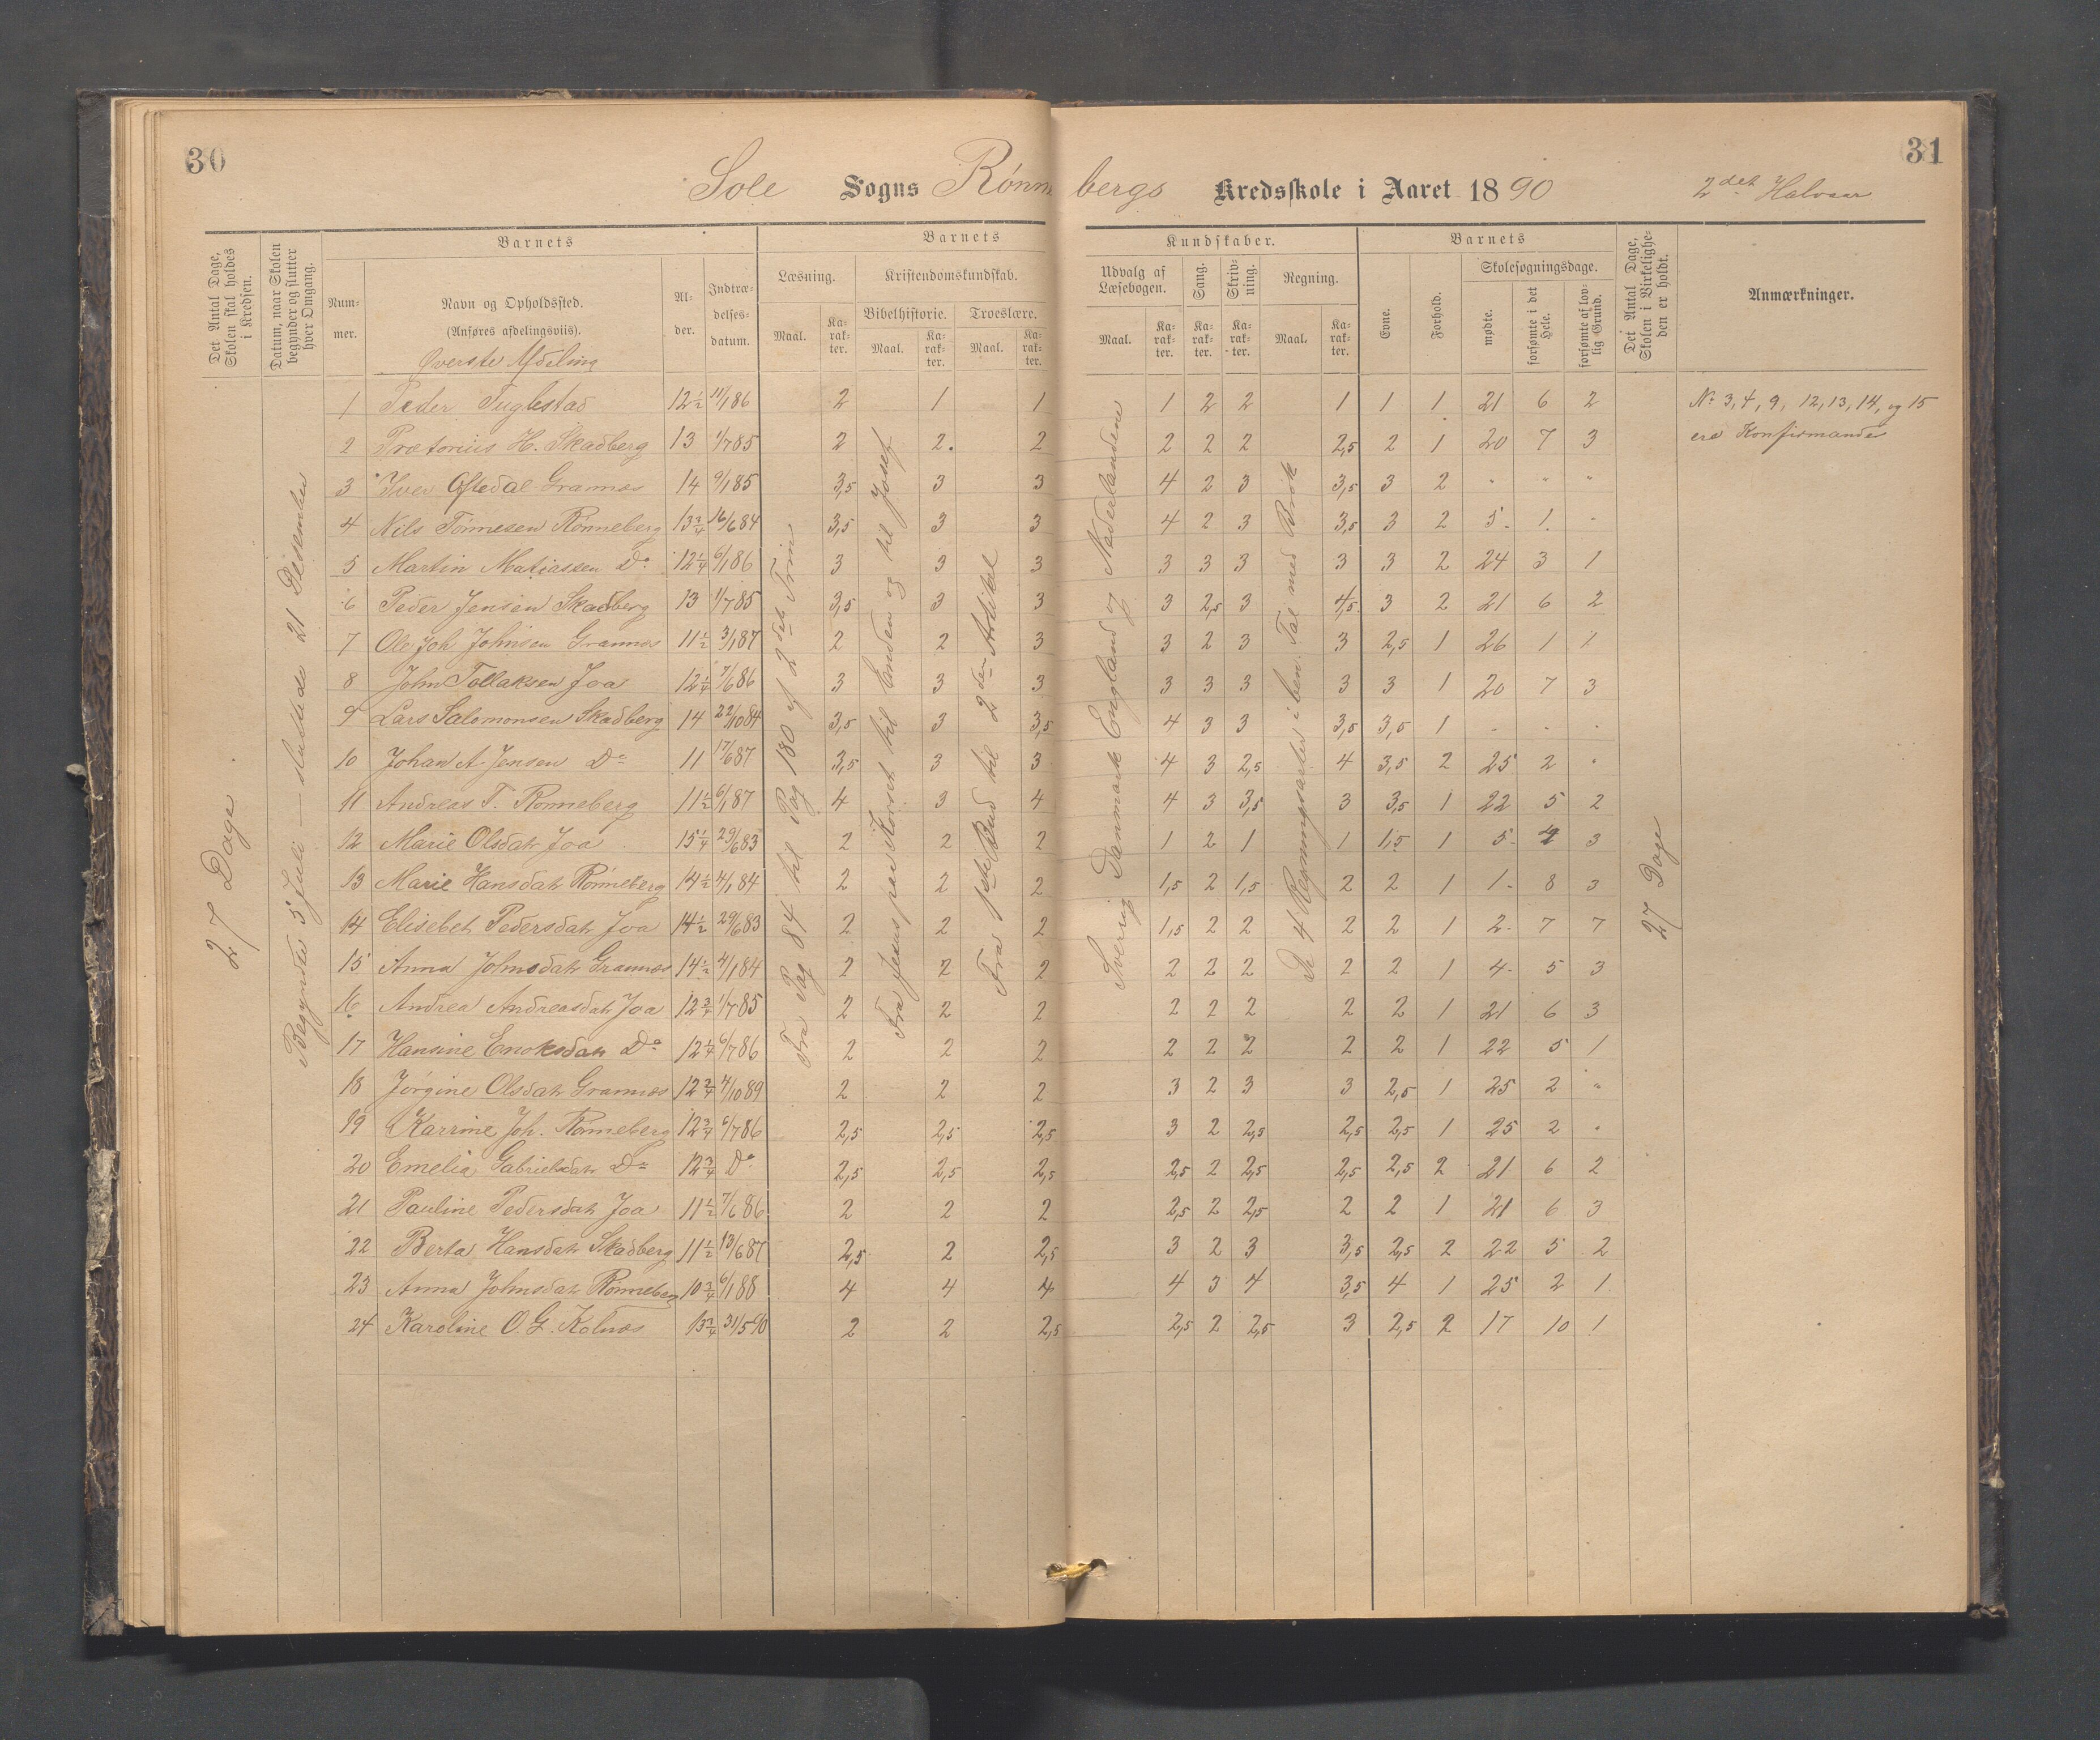 30
31
Sole Sogns Rønnebergs Kredsskole i Aaret 1890 2det Halvaar
Det Antal Dage, Skolen skal holdes i Kredsen.
Datum, naar Skolen begynder og slutter hver Omgang.
Barnets
Barnets
Kundskaber.
Barnets
Det Antal Dage, Skolen i Virkeligheden er holdt.
Anmærkninger.
Nummer.
Navn og Opholdssted.
(Anføres afdelingsviis).
Øverste Afdeling
Alder.
Indtrædelsesdatum.
Læsning.
Kristendomskundskab.
Bibelhistorie. Troeslære.
Maal. Karakter. Maal. Karakter. Maal. Karakter.
Udvalg af Læsebogen. Sang. Skrivning. Regning.
Maal. Karakter. Karakter. Karakter. Maal. Karakter.
Evne. Forhold. Skolesøgningsdage.
mødte. forsømte i det Hele. forsømte af lovlig Grund.
27 Dage
Begyndte 5 Juli — sluttede 21 Desember
Fra Pag 84 til Pag 180 af 2det Trin
Fra Jesus paa Korset til Enden og til Josef
Fra 1ste Bud til 2den Artikel
Sverig Danmark England og Nederlandene
De 4 Regningsarter i ben. Tal med Brøk
27 Dage
1 Peder Fuglestad 12½ 11/1 86 2 1 1 1 2 2 1 1 1 21 6 2 No 3, 4, 9, 12, 13, 14, og 15
2 Prætorius H. Skadberg 13 1/7 85 2 2. 2 2 2 2 2,5 2 1 20 7 3 ere Konfirmander
3 Iver Oftedal Grannes 14 9/1 85 3,5 3 3 4 2 3 3,5 3 2 " " "
4 Nils Tørnesen Rønneberg 13¾ 16/6 84 3,5 3 3 4 2 3 3,5 3 2 5 1 -
5 Martin Matiassen Do 12¼ 6/1 86 3 3 3 3 3 3 3 3 2 24 3 1
6 Peder Jensen Skadberg 13 1/7 85 3,5 3 3 3 2,5 3 4,5 3 2 21 6 2
7 Ole Joh Johnsen Grannes 11½ 3/1 87 2 2 3 3 2 3 3 2,5 1 26 1 1
8 John Tollaksen Joa 12¼ 7/6 86 3 3 3 3 3 3 3 3 1 20 7 3
9 Lars Salomonsen Skadberg 14 22/10 84 3,5 3 3,5 4 3 3 3,5 3,5 1 - - -
10 Johan A. Jensen Do 11 17/6 87 3,5 3 3 4 3 2,5 4 3,5 2 25 2 "
11 Andreas T. Rønneberg 11½ 6/1 87 4 3 4 4 3 3,5 3 3,5 1 22 5 2
12 Marie Olsdatr Joa 15¼ 29/6 83 2 2 2 1 2 1 1 1,5 1 5 4 3
13 Marie Hansdatr Rønneberg 14½ 4/1 84 2 2 2 1,5 2 1,5 2 2 1 1 8 3
14 Elisebet Pedersdatr Joa 14½ 29/6 83 2 2 2 1,5 2 2 2 2 1 2 7 7
15 Anna Johnsdatr Grannes 14½ 4/1 84 2 2 2 2 2 2 2 2 1 4 5 3
16 Andrea Andreasdatr Joa 12¾ 1/7 85 2 2 2 2 2 2 2 2 1 21 6 3
17 Hansine Enoksdatr Do 12¼ 6/7 86 2 2 2 2 2 2 2 2 1 22 5 1
18 Jørgine Olsdatr Grannes 12¾ 4/10 89 2 2 2 3 2 3 3 2,5 1 25 2 "
19 Karrine Joh. Rønneberg 12¾ 6/7 86 2,5 2,5 2,5 3 2 2,5 2,5 2,5 1 25 2 "
20 Emelia Gabrielsdatr Do 12¾ Do 2,5 2,5 2,5 2,5 2 2,5 2,5 2,5 2 21 6 2
21 Pauline Pedersdatr Joa 11½ 7/6 86 2 2 2 2,5 2 2,5 2 2 1 21 6 3
22 Berta Hansdatr Skadberg 11½ 13/6 87 2,5 2 2,5 3 2 3 3,5 2,5 2 22 5 2
23 Anna Johnsdatr Rønneberg 10¾ 6/1 88 4 4 4 4 3 4 3,5 4 1 25 2 1
24 Karoline O. G. Kolnes 13¾ 31/5 90 2 2 2,5 2,5 2 2,5 3 2,5 2 17 10 1